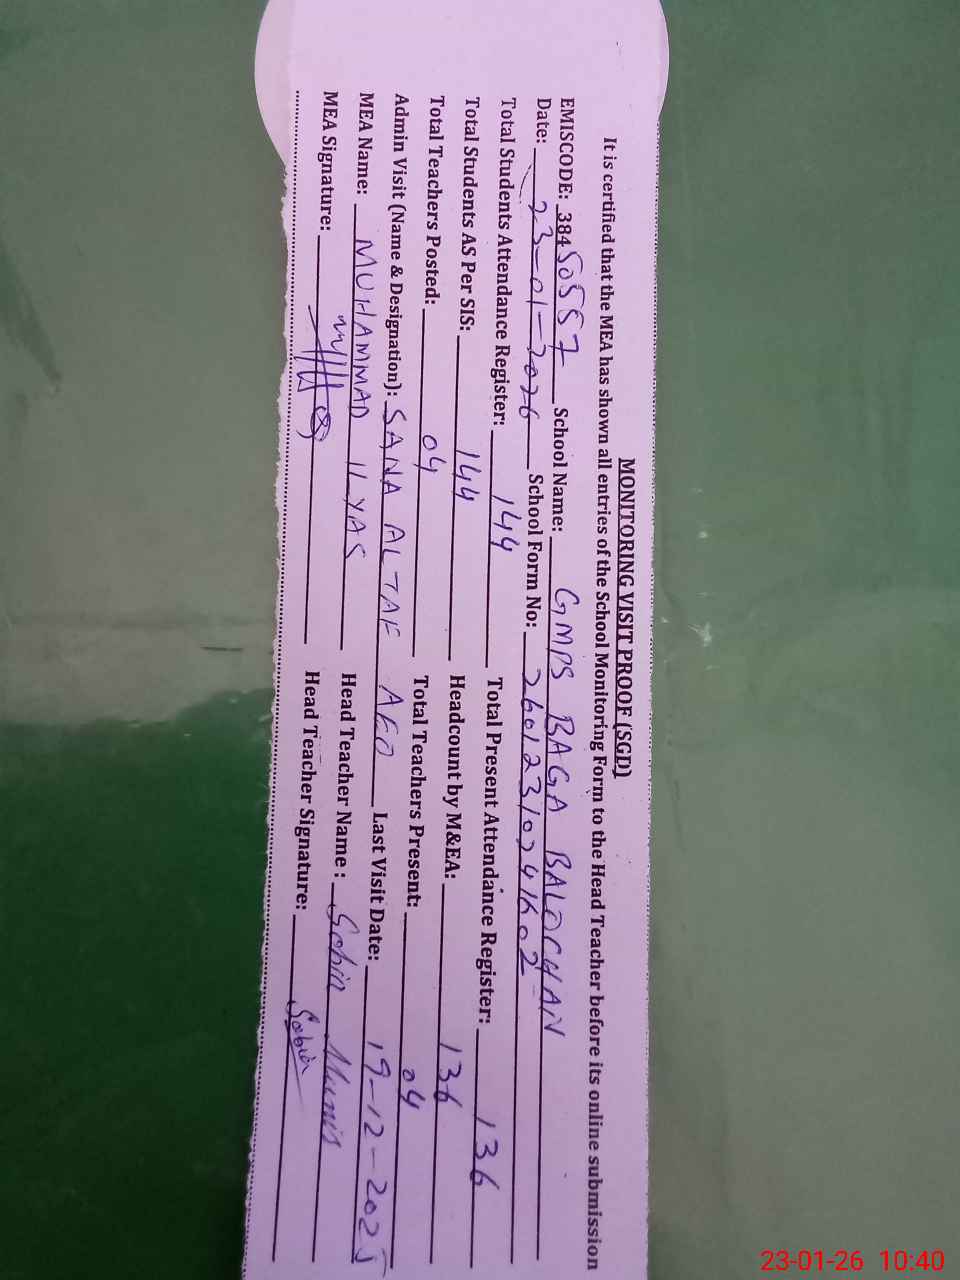 MONITORING VISIT PROOF (SGD)
It is certified that the MEA has shown all entries of the School Monitoring Form to the Head Teacher before its online submission
EMISCODE: 38450557 School Name: GMPS BAGA BALOCHAN
Date: 23-01-2026 School Form No: 26012310241602
Total Students Attendance Register: 144 Total Present Attendance Register: 136
Total Students AS Per SIS: 144 Headcount by M&EA: 136
Total Teachers Posted: 04 Total Teachers Present: 04
Admin Visit (Name & Designation): SANA ALTAF AEO Last Visit Date: 19-12-2025
MEA Name: MUHAMMAD ILYAS Head Teacher Name: Sobia
MEA Signature: Head Teacher Signature: Sobia
23-01-26 10:40